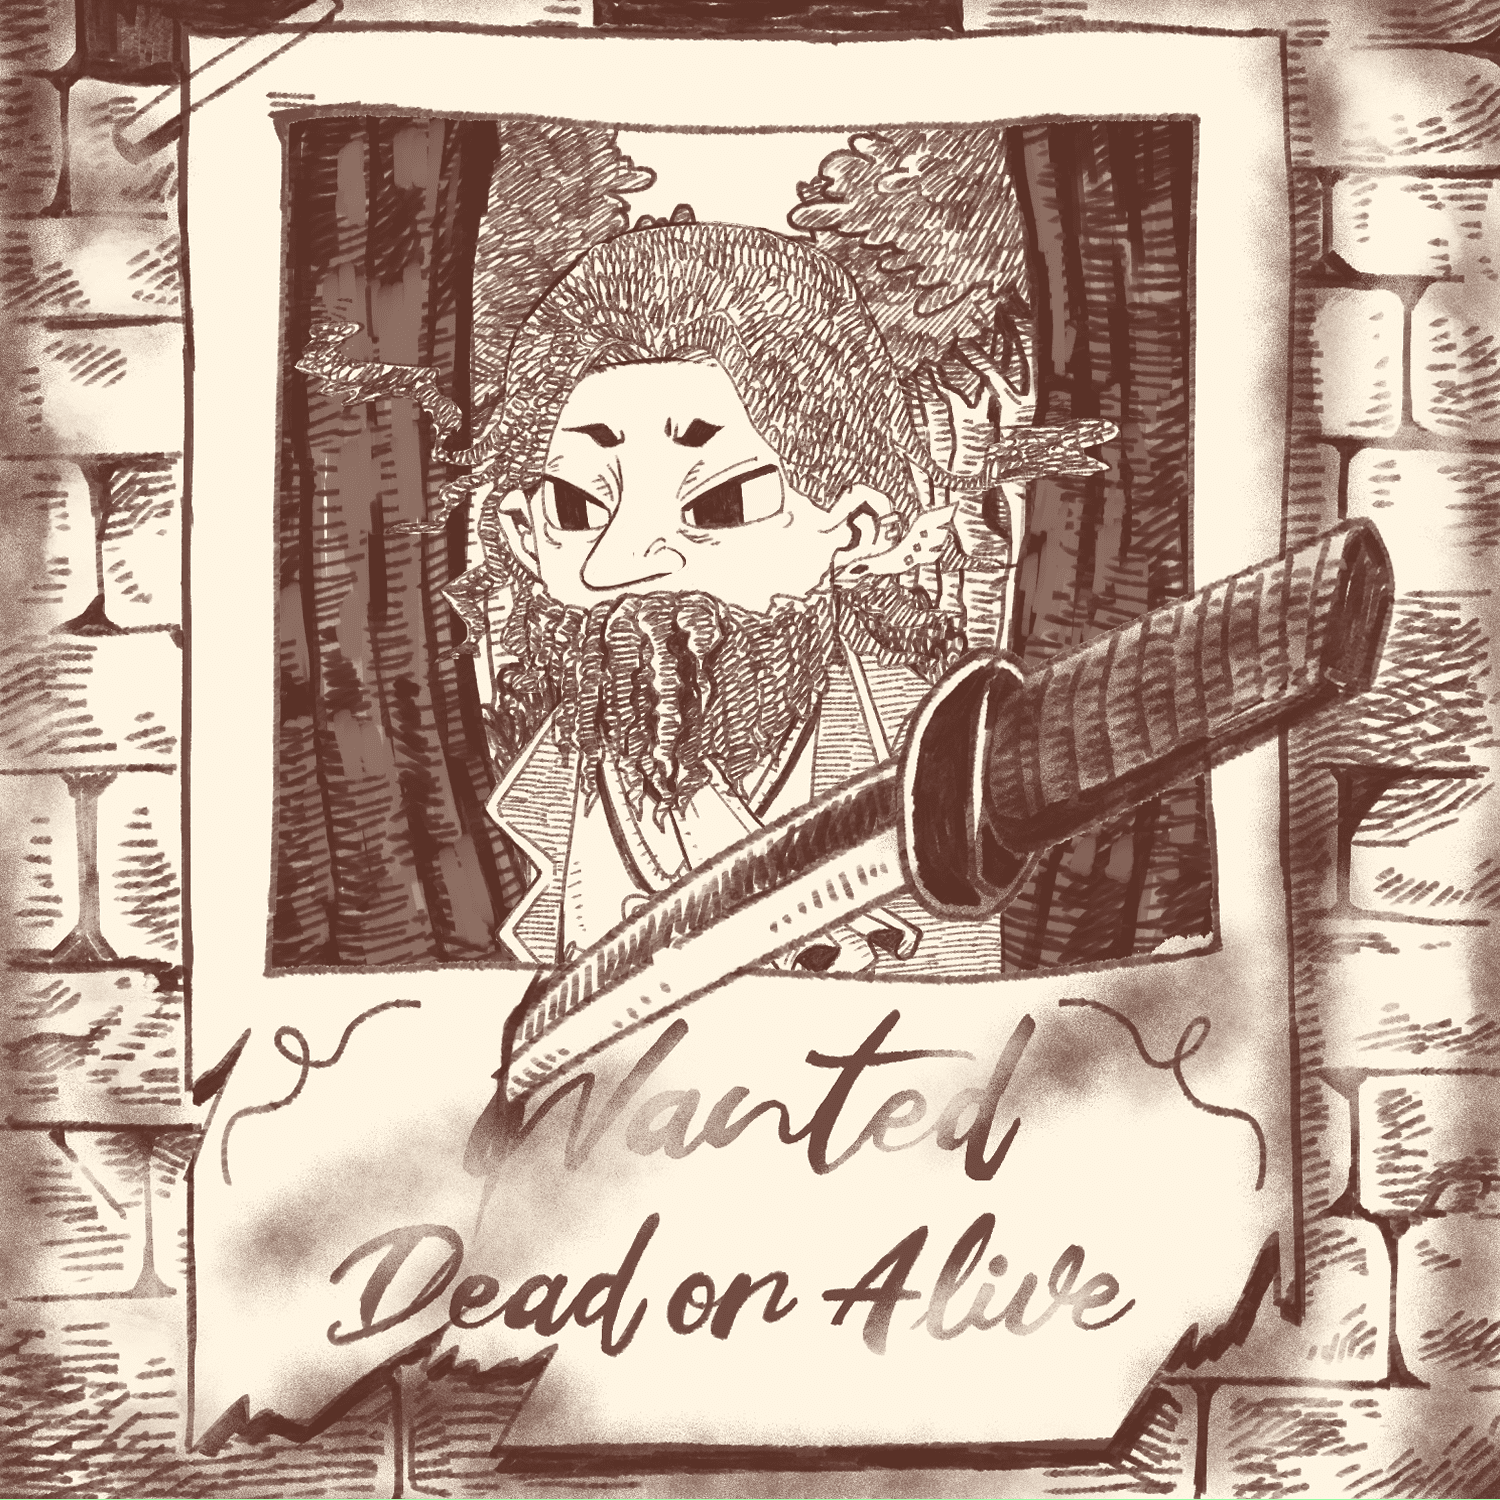 Wanted
Dead or Alive